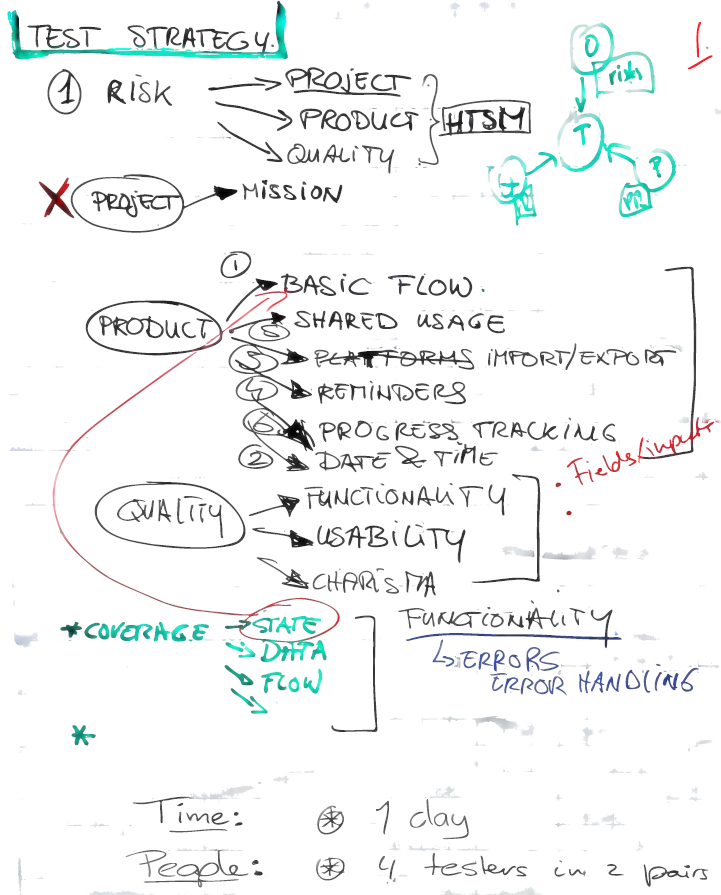 TEST STRATEGY.
1.
① RISK
PROJECT
PRODUCT
QUALITY
HTSM
Q
risks
T
P
PROJECT
MISSION
①
BASIC FLOW.
PRODUCT
⑥ SHARED USAGE
⑤ PLATFORMS IMPORT/EXPORT
④ REMINDERS
⑥ PROGRESS TRACKING
② DATE & TIME
• Fields/input
•
QUALITY
FUNCTIONALITY
USABILITY
CHARISMA
* COVERAGE → STATE
DATA
FLOW
*
FUNCTIONALITY
↳ ERRORS
ERROR HANDLING
Time: 1 day
People: 4 testers in 2 pairs